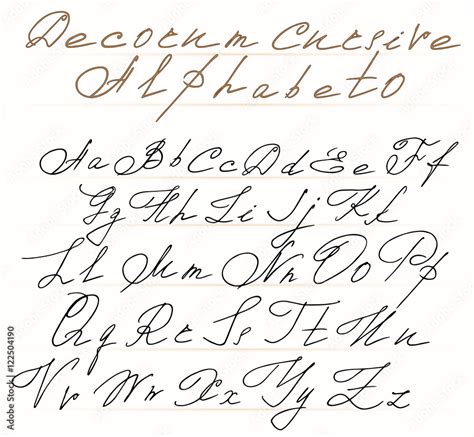 Decorum Cursive
Alphabeto
Aa Bb Cc Dd Ee Ff
Gg Hh Ii Jj Kk
Ll Mm Nn Oo Pp
Qq Rr Ss Tt Uu
Vv Ww Xx Yy Zz
Adobe Stock | #122504190